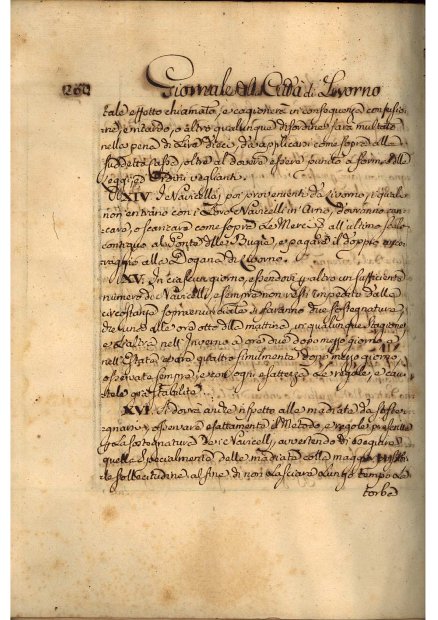 260 Giornale della Città di Livorno
tale effetto chiamato, e cagionerà in conseguenza confusio-
ne, e ritardo, o altro qualunque disordine sarà multato
nella pena di Lire dieci, da applicarsi come sopra alla
suddetta Cassa, oltre al dovere essere punito a forma delle
Leggi, ed Ordini veglianti.
XIV I Navicelli, poi provenienti da Livorno, i quali
non entrano con i loro Navicelli in Arno, dovranno ca-
ricare, o scaricare come sopra le Merci all'ultimo scalo
contiguo al Ponte delle Bugie, e pagare il doppio
alla Dogana di Livorno.
XV. In ciascun giorno, essendovi peraltro un sufficiente
numero de Navicelli, e sempre non resti impedito dalla
circostanza soprenunciata si faranno due Sostegnature,
che una alle ore otto di mattina, in qualunque Stagione,
e l'altra nell'Inverno a ore due dopo mezzo giorno, e
nell'Estate a ore quattro similmente dopo mezzo giorno,
osservata sempre, e con ogni esattezza le regole, e cau-
tele già stabilite.
XVI Si dovrà anche rispetto alle madiate da soste-
gnarsi, osservare esattamente il Metodo, e regole prescritte
la sostegnatura de i Navicelli, avvertendo di eseguire
quella specialmente delle madiate colla maggior possibi-
le sollecitudine al fine di non lasciare lungo tempo le
torbe